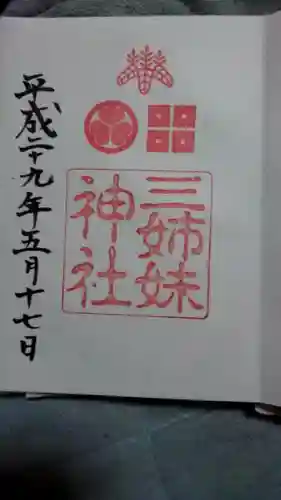 三姉妹
神社
平成二十九年五月十七日